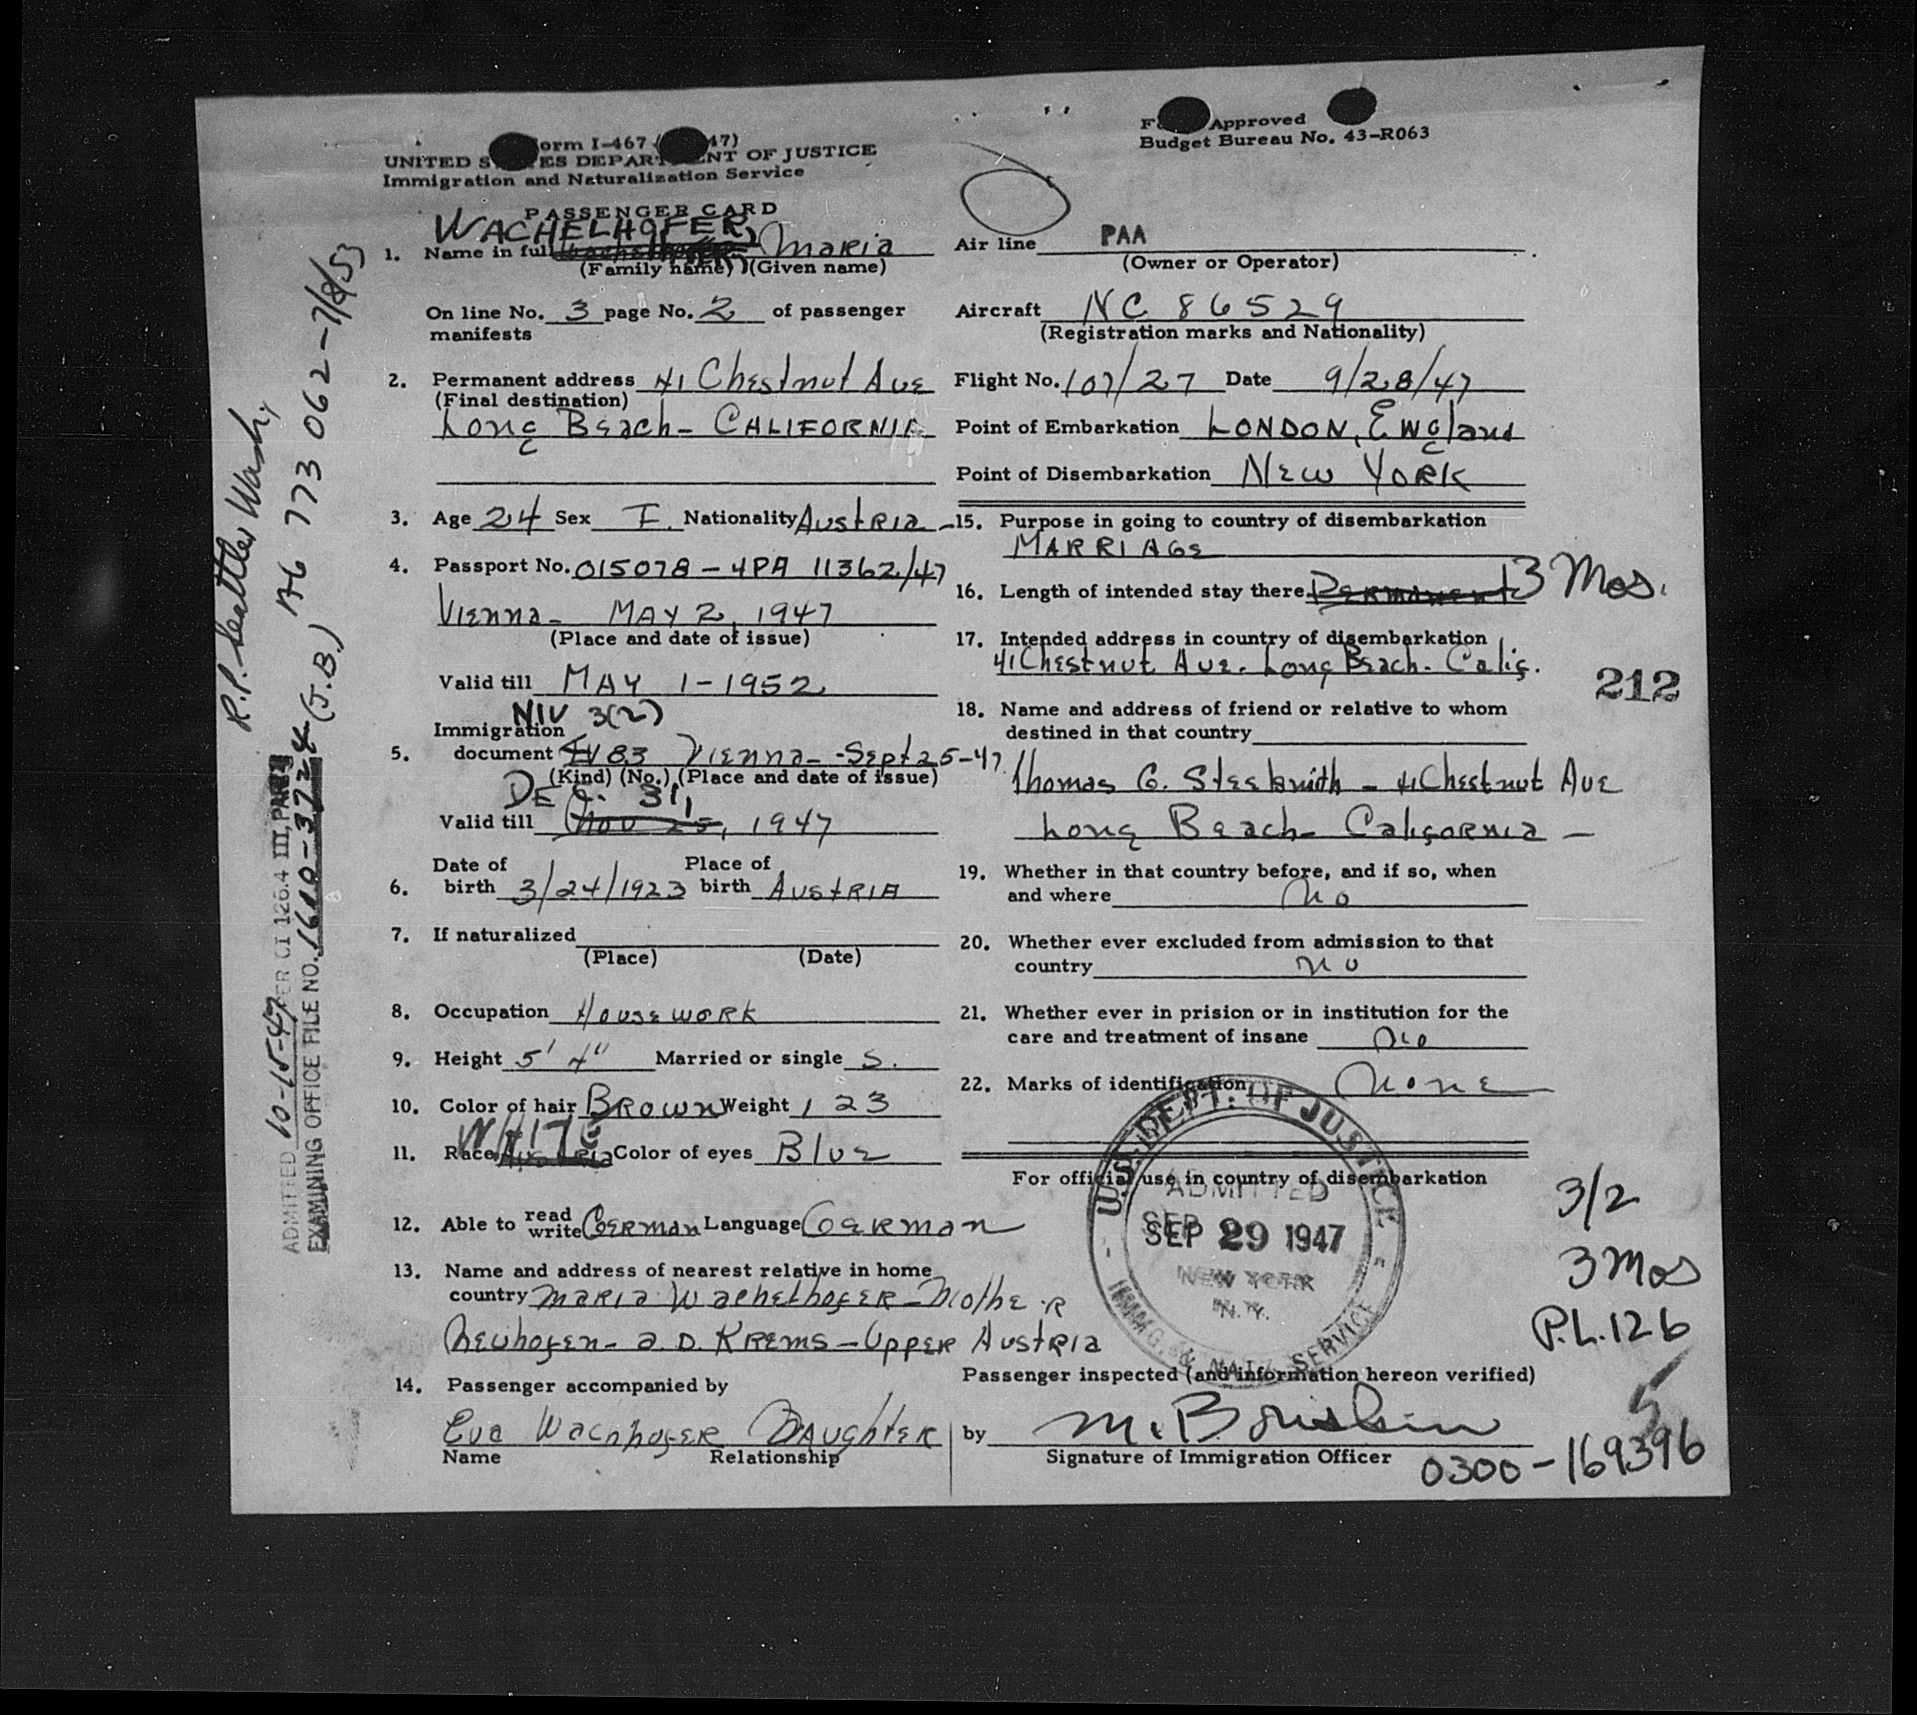 Form I-467 ( 47)
UNITED STATES DEPARTMENT OF JUSTICE
Immigration and Naturalization Service
PASSENGER CARD
Form Approved
Budget Bureau No. 43-R063
WACHELHOFER,
1. Name in full Maria
(Family name) (Given name)
On line No. 3 page No. 2 of passenger
manifests
2. Permanent address 41 Chestnut Ave
(Final destination)
Long Beach - CALIFORNIA
3. Age 24 Sex F. Nationality Austria -
4. Passport No. 015078 - 4PA 11362/47
Vienna - MAY 2, 1947
(Place and date of issue)
Valid till MAY 1-1952
NIV 3(2)
Immigration
5. document IV 83 Vienna - Sept 25-47
(Kind) (No.) (Place and date of issue)
DEC. 31,
Valid till Nov 25, 1947
Date of Place of
6. birth 3/24/1923 birth AUSTRIA
7. If naturalized
(Place) (Date)
8. Occupation Housework
9. Height 5' 4" Married or single S.
10. Color of hair Brown Weight 123
WHITE
11. Race Austria Color of eyes Blue
12. Able to read write German Language German
13. Name and address of nearest relative in home
country Maria Wachelhofer - Mother
Neuhofen - a. D. Krems - Upper Austria
14. Passenger accompanied by
Eva Wachhofer Daughter
Name Relationship
Air line PAA
(Owner or Operator)
Aircraft NC 86529
(Registration marks and Nationality)
Flight No. 107/27 Date 9/28/47
Point of Embarkation LONDON, England
Point of Disembarkation NEW YORK
15. Purpose in going to country of disembarkation
MARRIAGE
16. Length of intended stay there Permanent 3 Mos.
17. Intended address in country of disembarkation
41 Chestnut Ave. Long Beach - Calif.
212
18. Name and address of friend or relative to whom
destined in that country
Thomas G. - 41 Chestnut Ave
Long Beach - California -
19. Whether in that country before, and if so, when
and where No
20. Whether ever excluded from admission to that
country No
21. Whether ever in prision or in institution for the
care and treatment of insane No
22. Marks of identification None
For official use in country of disembarkation
U.S. DEPT. OF JUSTICE
ADMITTED
SEP 29 1947
NEW YORK
N.Y.
IMMIG. & NAT. SERVICE
3/2
3 Mos
P.L. 126
5
Passenger inspected (and information hereon verified)
by
Signature of Immigration Officer
0300-169396
R.P. Seattle, Wash.
A6 773 062 - 7/8/53
ADMITTED 10-15-47 PER CI 126.4 III, PAR
EXAMINING OFFICE FILE NO. 1610-3724 (J.B.)